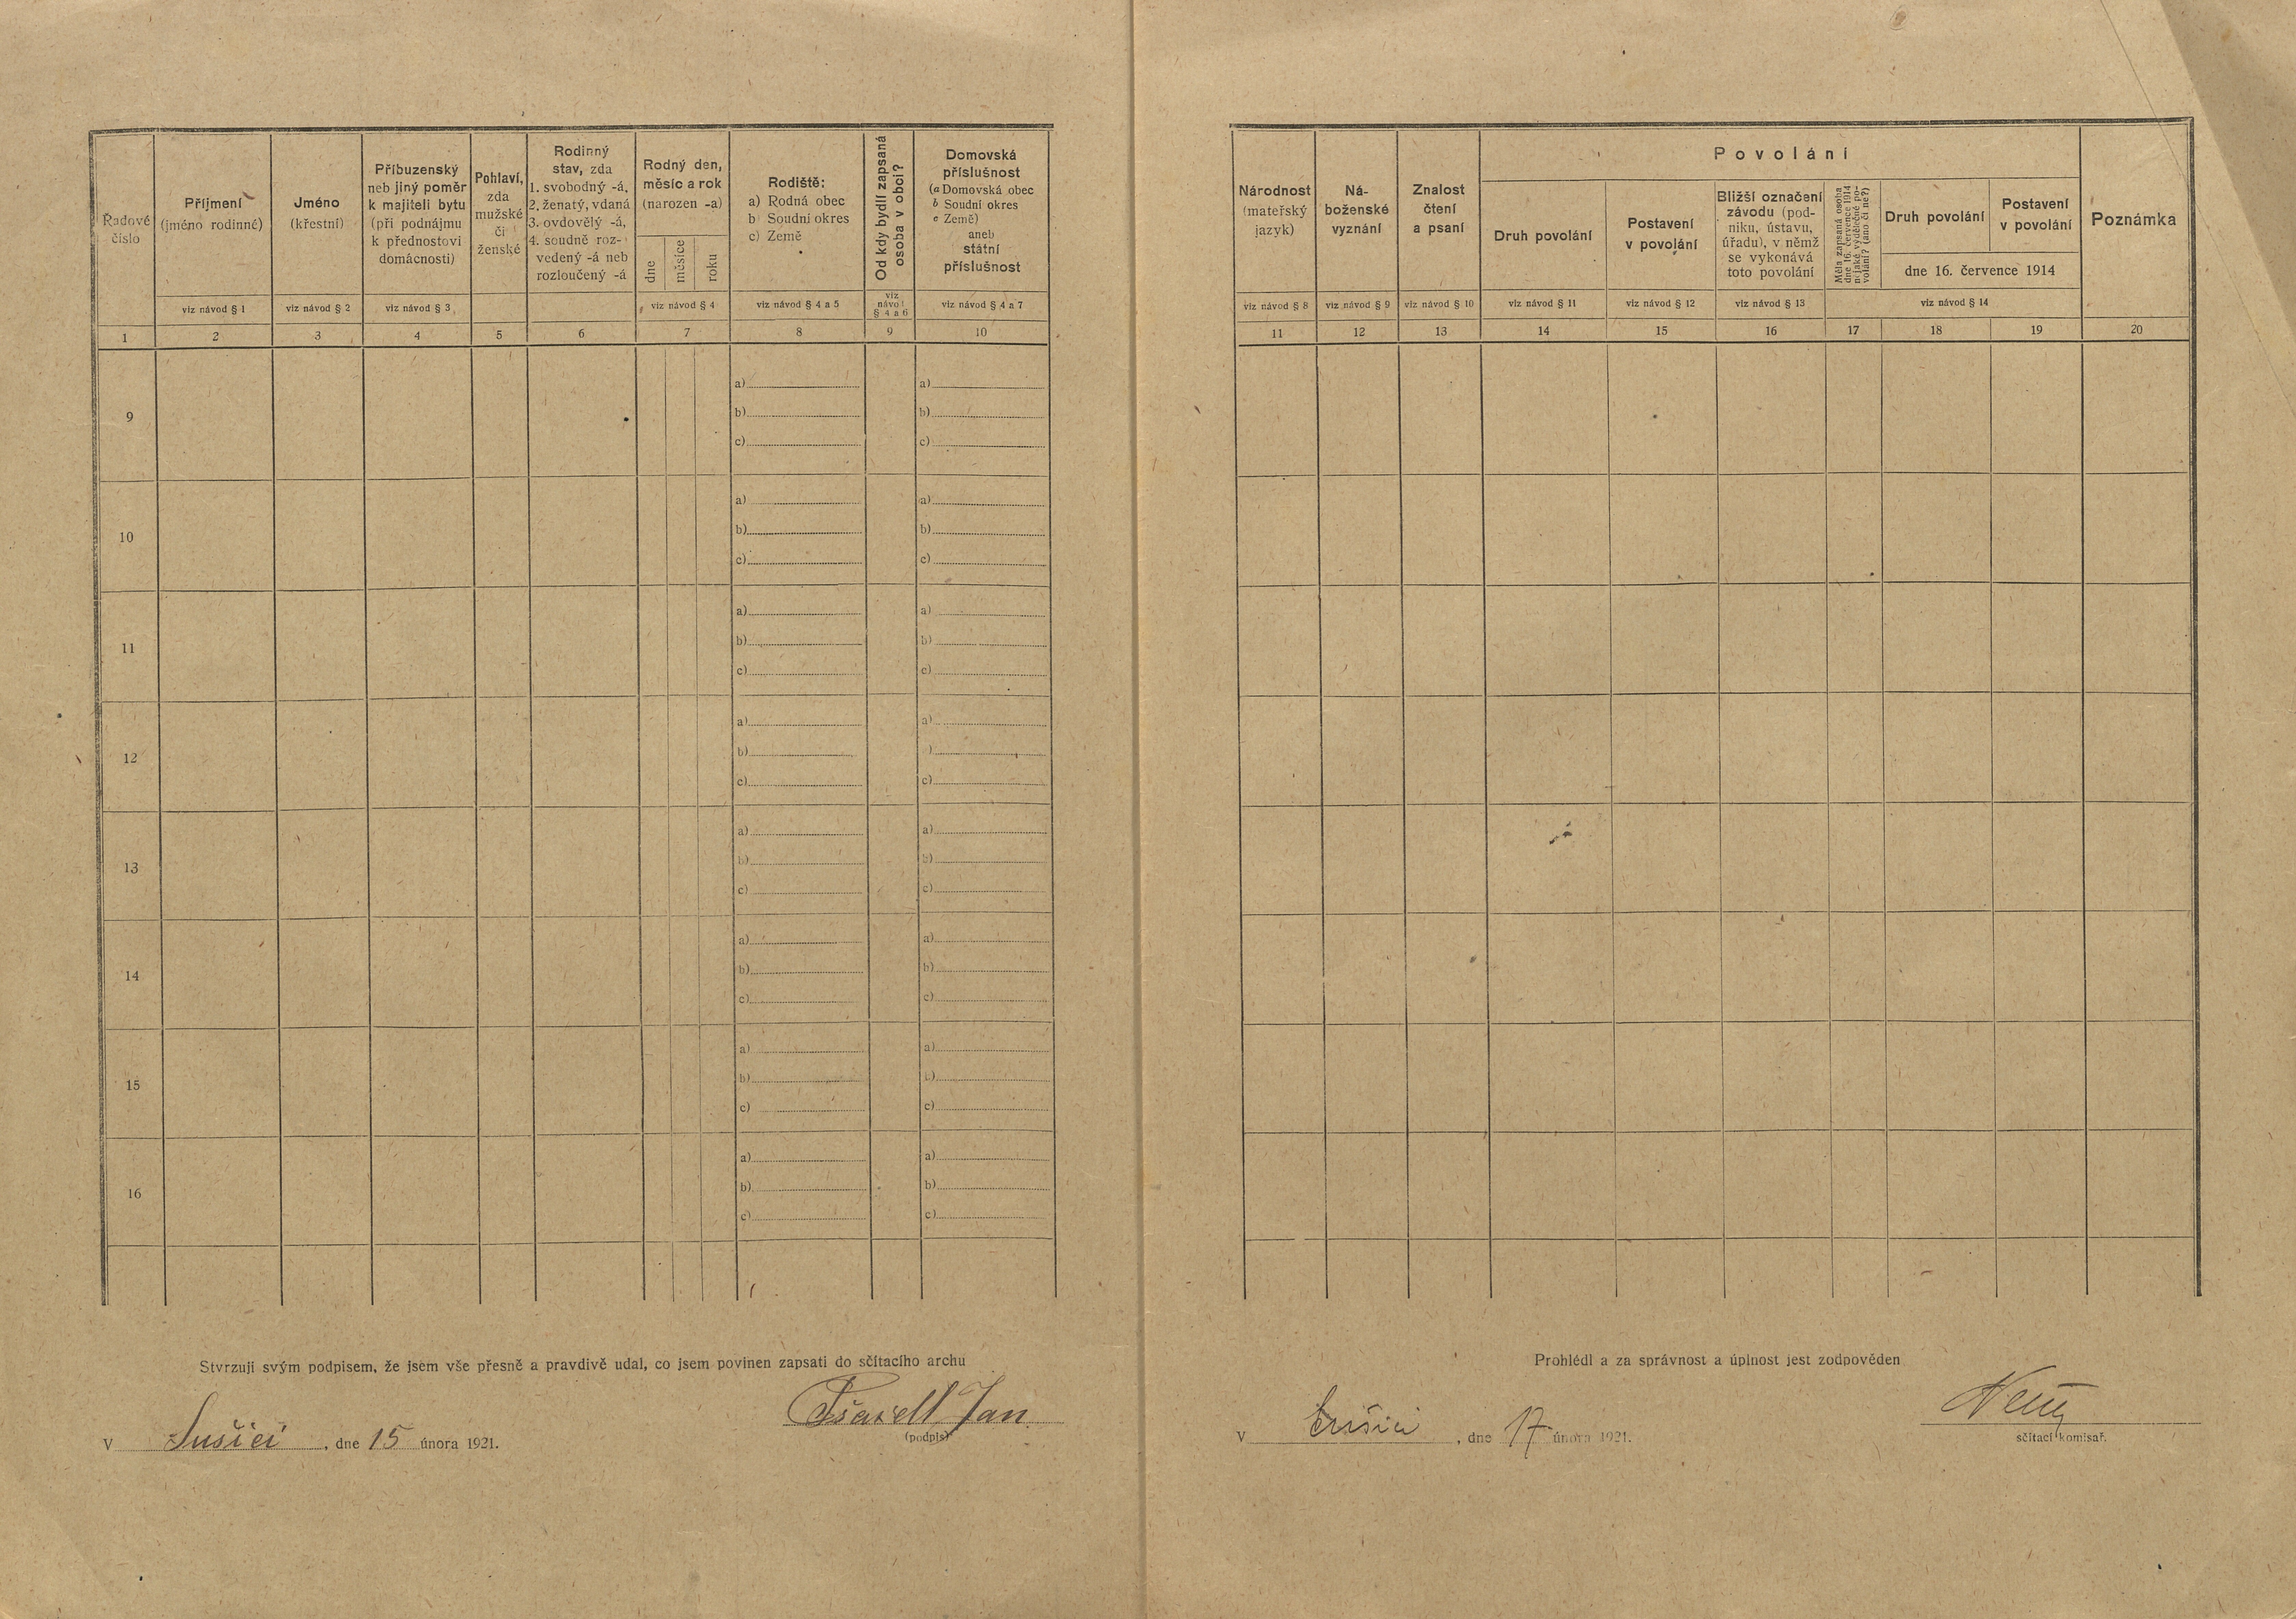 Řadové
číslo
Příjmení
(jméno rodinné)
Jméno
(křestní)
Příbuzenský
neb jiný poměr
k majiteli bytu
(při podnájmu
k přednostovi
domácnosti)
Pohlaví,
zda
mužské
či
ženské
Rodinný
stav, zda
1. svobodný -á,
2. ženatý, vdaná
3. ovdovělý -á,
4. soudně roz-
vedený -á neb
rozloučený -á
Rodný den,
měsíc a rok
(narozen -a)
dne
měsíce
roku
Rodiště:
a) Rodná obec
b) Soudní okres
c) Země
Od kdy bydlí zapsaná
osoba v obci?
Domovská
příslušnost
(a Domovská obec
b Soudní okres
c Země)
aneb
státní
příslušnost
viz návod § 1
viz návod § 2
viz návod § 3
viz návod § 4
viz návod § 4 a 5
viz
návod
§ 4 a 6
viz návod § 4 a 7
1 2 3 4 5 6 7 8 9 10
9
a) a)
b) b)
c) c)
10
a) a)
b) b)
c) c)
11
a) a)
b) b)
c) c)
12
a) a)
b) )
c) c)
13
a) a)
b) b)
c) c)
14
a) a)
b) b)
c) c)
15
a) a)
b) b)
c) c)
16
a) a)
b) b)
c) c)
Stvrzuji svým podpisem, že jsem vše přesně a pravdivě udal, co jsem povinen zapsati do sčítacího archu
Jan
(podpis)
V Sušici, dne 15 února 1921.
Národnost
(mateřský
jazyk)
Ná-
boženské
vyznání
Znalost
čtení
a psaní
Povolání
Druh povolání
Postavení
v povolání
Bližší označení
závodu (pod-
niku, ústavu,
úřadu), v němž
se vykonává
toto povolání
Měla zapsaná osoba
dne 16. července 1914
nějaké výdělečné po-
volání? (ano či ne?)
Druh povolání
Postavení
v povolání
dne 16. července 1914
Poznámka
viz návod § 8
viz návod § 9
viz návod § 10
viz návod § 11
viz návod § 12
viz návod § 13
viz návod § 14
11 12 13 14 15 16 17 18 19 20
Prohlédl a za správnost a úplnost jest zodpověden
V Sušici, dne 17 února 1921.
sčítací komisař.